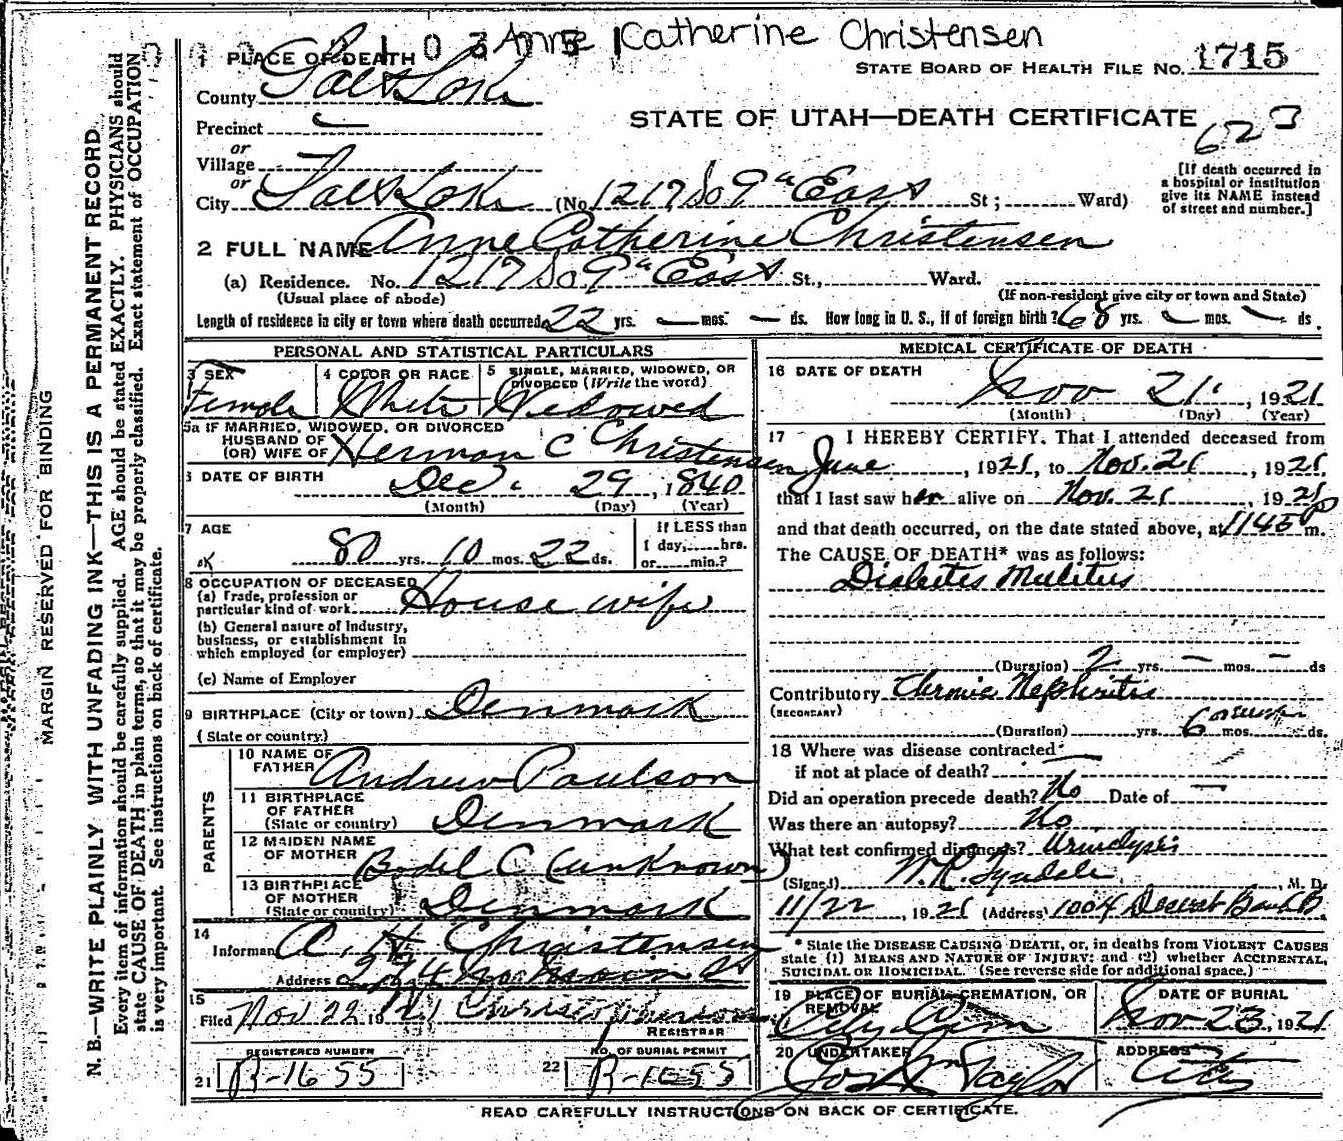 Anne Catherine Christensen
1 PLACE OF DEATH
STATE BOARD OF HEALTH FILE No. 1715
County Salt Lake
STATE OF UTAH—DEATH CERTIFICATE
Precinct
or
Village
or
City Salt Lake (No 1217 So 9th East St; Ward)
[If death occurred in
a hospital or institution
give its NAME instead
of street and number.]
2 FULL NAME Anne Catherine Christensen
(a) Residence. No. 1217 So 9th East St., Ward.
(Usual place of abode) (If non-resident give city or town and State)
Length of residence in city or town where death occurred 22 yrs. — mos. — ds. How long in U. S., if of foreign birth? 68 yrs. — mos. — ds.
PERSONAL AND STATISTICAL PARTICULARS
3 SEX
Female
4 COLOR OR RACE
White
5 SINGLE, MARRIED, WIDOWED, OR
DIVORCED (Write the word)
Widowed
5a IF MARRIED, WIDOWED, OR DIVORCED
HUSBAND OF
(OR) WIFE OF Herman C Christensen
6 DATE OF BIRTH Dec. 29, 1840
(Month) (Day) (Year)
7 AGE
80 yrs. 10 mos. 22 ds.
If LESS than
1 day,......hrs.
or......min.?
8 OCCUPATION OF DECEASED
(a) Trade, profession or
particular kind of work House wife
(b) General nature of industry,
business, or establishment in
which employed (or employer)
(c) Name of Employer
9 BIRTHPLACE (City or town) Denmark
(State or country.)
PARENTS
10 NAME OF
FATHER Andrew Paulson
11 BIRTHPLACE
OF FATHER
(State or country) Denmark
12 MAIDEN NAME
OF MOTHER Bodil C (unknown)
13 BIRTHPLACE
OF MOTHER
(State or country) Denmark
14
Informant A. H. Christensen
Address
15
Filed Nov 22 1921
REGISTRAR
REGISTERED NUMBER
21 B-1655
NO. OF BURIAL PERMIT
22 B-1655
MEDICAL CERTIFICATE OF DEATH
16 DATE OF DEATH
Nov 21, 1921
(Month) (Day) (Year)
17 I HEREBY CERTIFY. That I attended deceased from
June, 1921, to Nov. 21, 1921.
that I last saw her alive on Nov. 21 1921
and that death occurred, on the date stated above, at 1145 p m.
The CAUSE OF DEATH* was as follows:
Diabetes Mellitus
(Duration) 2 yrs. — mos. — ds
Contributory Chronic Nephritis
(SECONDARY)
(Duration) yrs. 6 mos. ds.
18 Where was disease contracted
if not at place of death? —
Did an operation precede death? No Date of —
Was there an autopsy? No
What test confirmed diagnosis? Urinalysis
(Signed) W. R. Tyndale, M. D.
11/22, 1921 (Address) 1004 Deseret Bank B.
* State the DISEASE CAUSING DEATH, or, in deaths from VIOLENT CAUSES
state (1) MEANS AND NATURE OF INJURY: and (2) whether ACCIDENTAL,
SUICIDAL or HOMICIDAL. (See reverse side for additional space.)
19 PLACE OF BURIAL, CREMATION, OR
REMOVAL
City Cem
DATE OF BURIAL
Nov 23, 1921
20 UNDERTAKER
Jos Wm Taylor
ADDRESS
City
READ CAREFULLY INSTRUCTIONS ON BACK OF CERTIFICATE.
MARGIN RESERVED FOR BINDING
N. B.—WRITE PLAINLY WITH UNFADING INK—THIS IS A PERMANENT RECORD
Every item of information should be carefully supplied. AGE should be stated EXACTLY. PHYSICIANS should
state CAUSE OF DEATH in plain terms, so that it may be properly classified. Exact statement of OCCUPATION
is very important. See instructions on back of certificate.